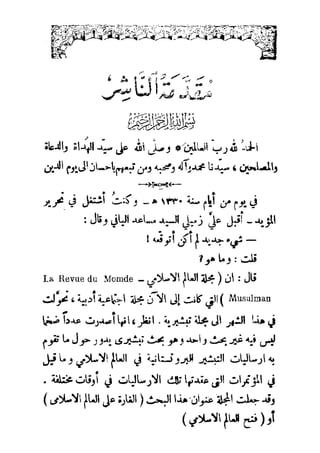 مقدمة الناشر
بسم الله الرحمن الرحيم
الحمد لله رب العالمين * وصلى الله على سيد الهداة والدعاة
والمصلحين ، سيدنا محمد وآله وصحبه ومن تبعهم باحسان الى يوم الدين
في يوم من أيام سنة ١٣٣٠ هـ - وكنت أشتغل في تحرير
المؤيد - أقبل عليَّ زميلي السيد مساعد اليافي وقال :
— شيء جديد لم أكن أتوقعه !
قلت : وما هو ؟
قال : ان ( مجلة العالم الاسلامي - La Revue du Momde
Musulman ) التي كانت الى الآن مجلة اجتماعية أدبية ، تحولت
في هذا الشهر الى مجلة تبشيرية . انظر ، انها أصدرت عدداً ضخماً
ليس فيه غير بحث واحد وهو بحث تبشيري يدور حول ما تقوم
به ارساليات التبشير البروتستانتية في العالم الاسلامي وما قيل
في المؤتمرات التي عقدتها تلك الارساليات في أوقات مختلفة .
وقد جعلت المجلة عنوان هذا البحث ( الغارة على العالم الاسلامي )
أو ( فتح العالم الاسلامي )